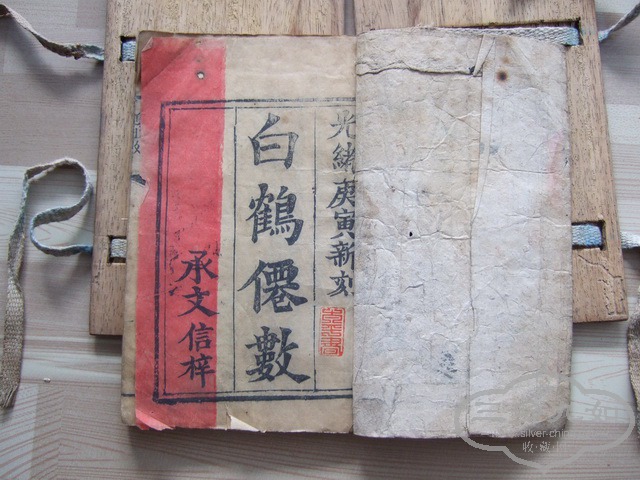 光緒庚寅新刻
白鶴僊數
承文信梓
收·藏